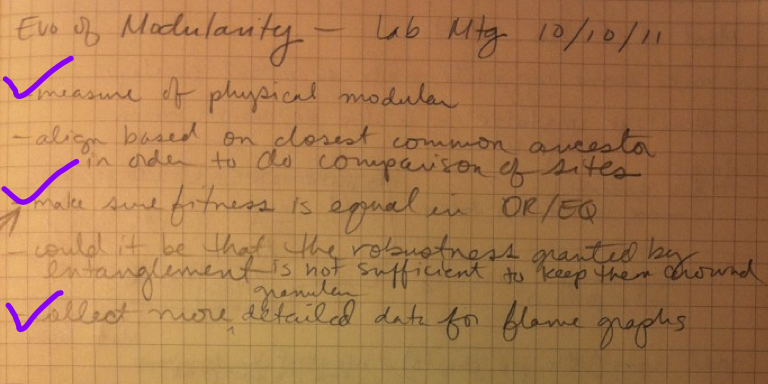 Evo of Modularity - Lab Mtg 10/10/11
- measure of physical modular
- align based on closest common ancestor
in order to do comparison of sites
- make sure fitness is equal in OR/EQ
- could it be that the robustness granted by
entanglement is not sufficient to keep them around
granular
- collect more detailed data for flame graphs